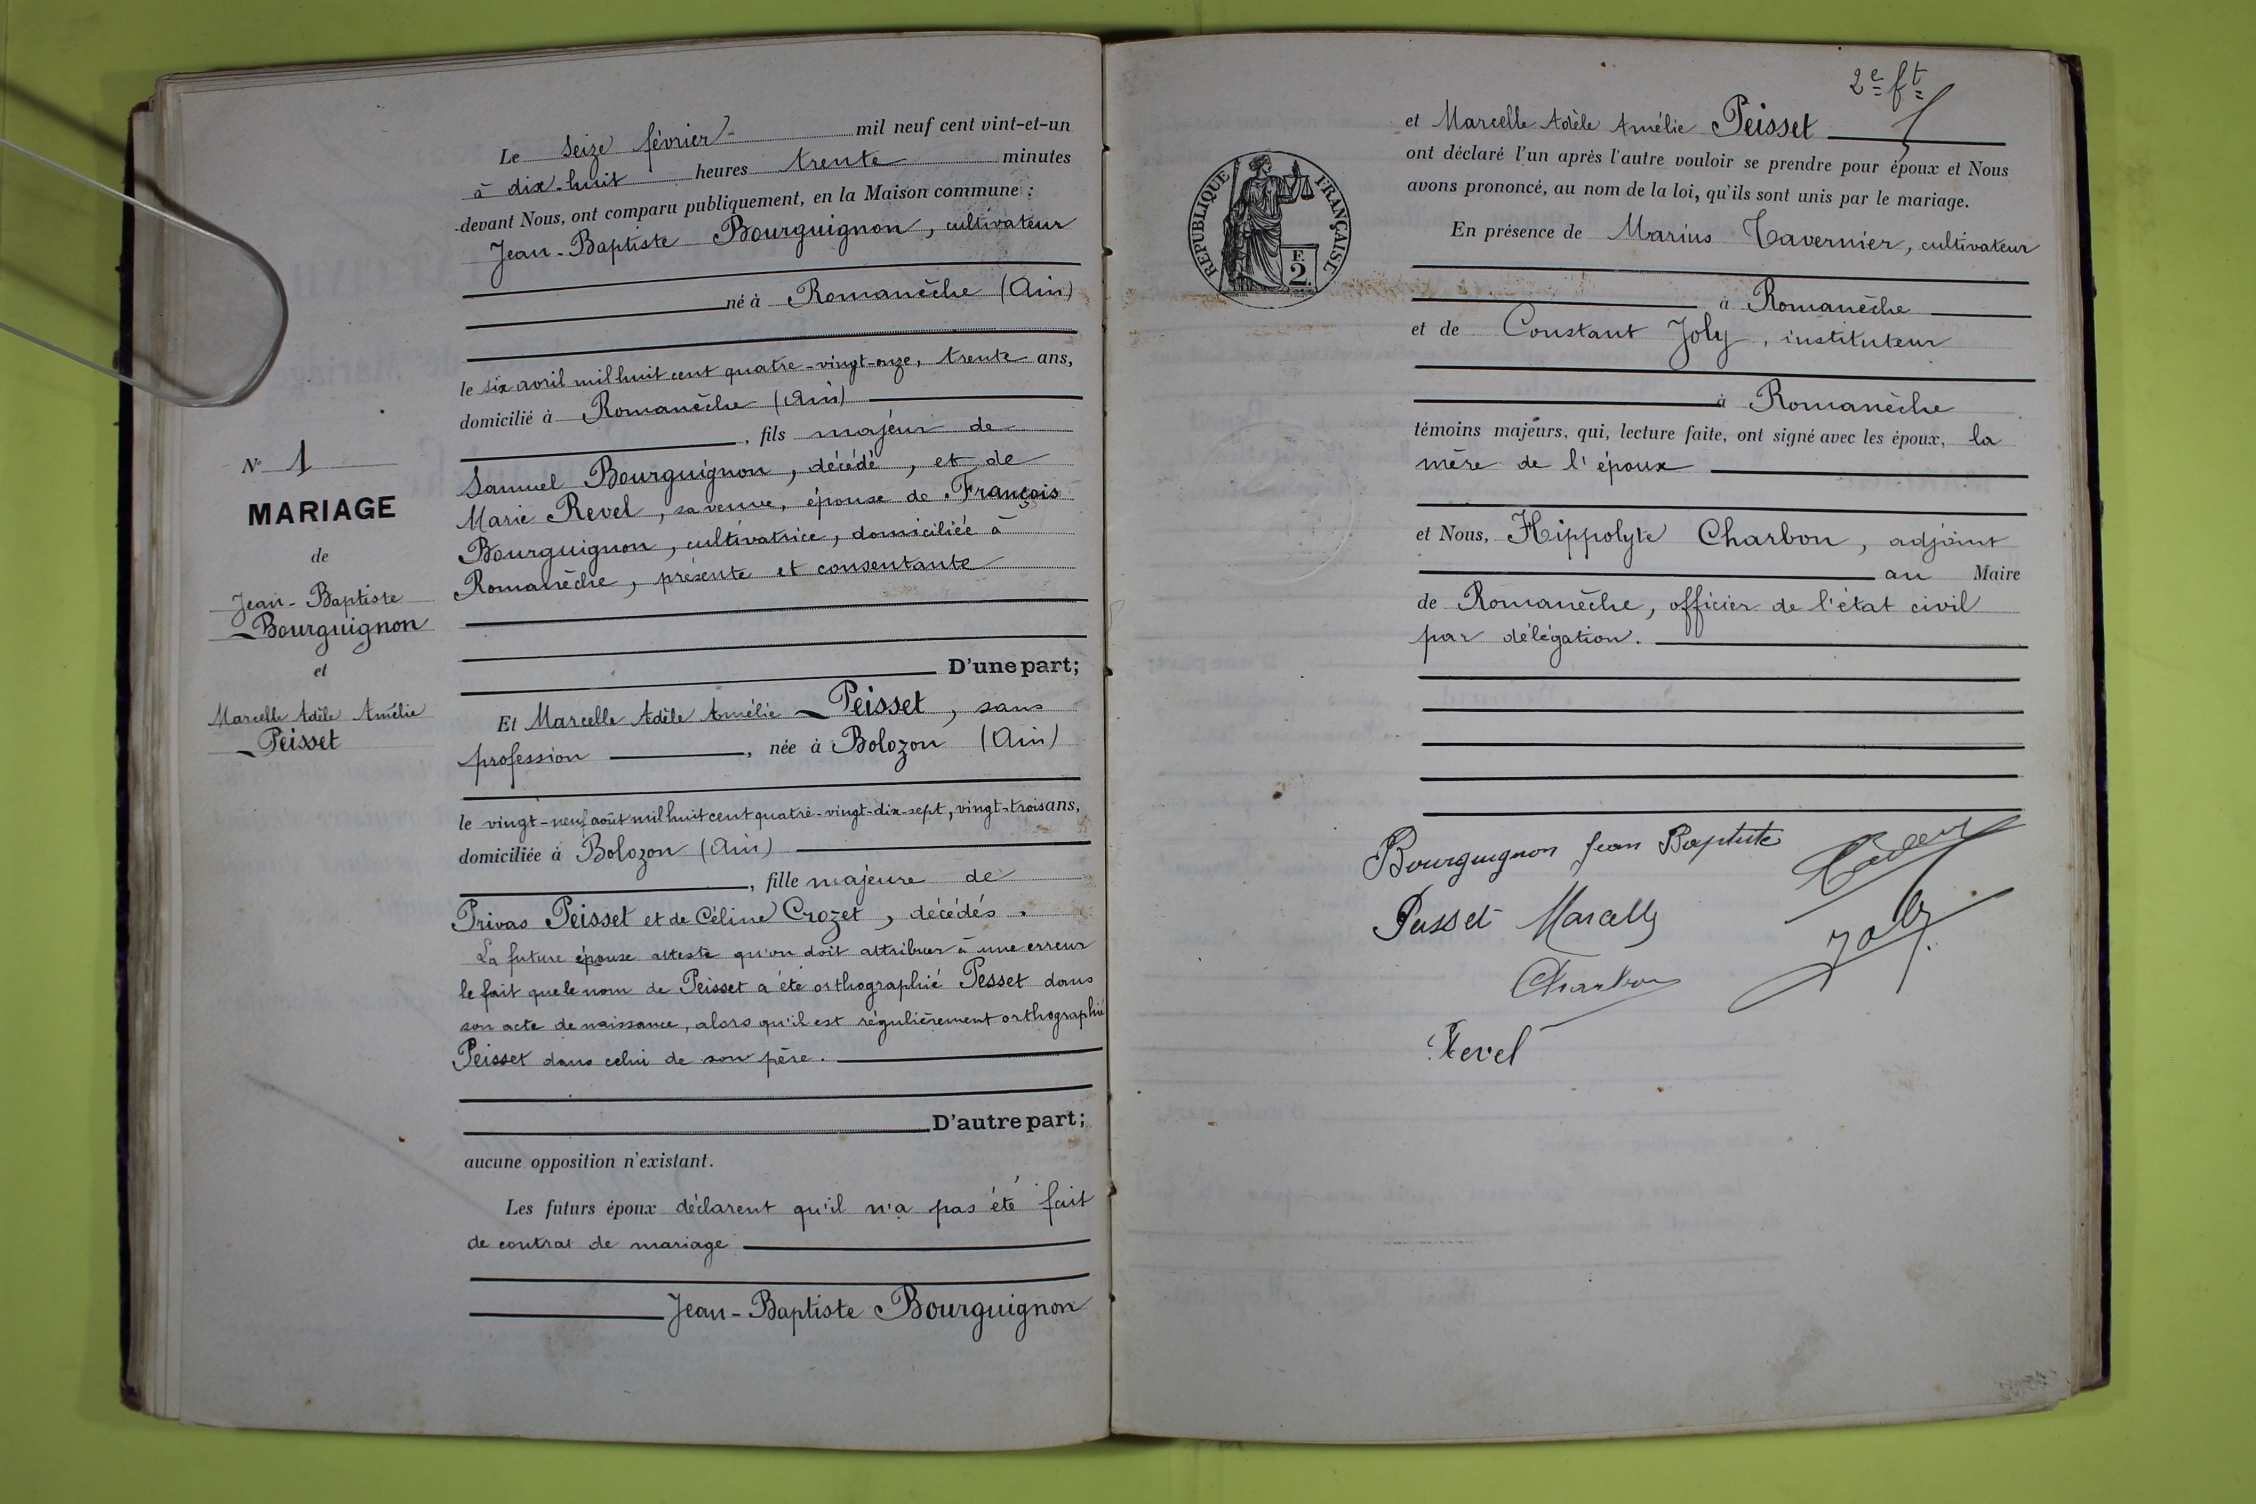 Le seize février mil neuf cent vint-et-un
à dix-huit heures trente minutes
devant Nous, ont comparu publiquement, en la Maison commune :
Jean-Baptiste Bourguignon, cultivateur
né à Romanèche (Ain)
le six avril mil huit cent quatre-vingt-onze, trente ans,
domicilié à Romanèche (Ain)
, fils majeur de
Samuel Bourguignon, décédé, et de
Marie Revel, sa veuve, épouse de François
Bourguignon, cultivatrice, domiciliée à
Romanèche, présente et consentante
D'une part;
N° 1
MARIAGE
de
Jean-Baptiste
Bourguignon
et
Marcelle Adèle Amélie
Peisset
Et Marcelle Adèle Amélie Peisset, sans
profession, née à Bolozon (Ain)
le vingt-neuf août mil huit cent quatre-vingt-dix-sept, vingt-trois ans,
domiciliée à Bolozon (Ain)
, fille majeure de
Privas Peisset et de Céline Crozet, décédés.
La future épouse atteste qu'on doit attribuer à une erreur
le fait que le nom de Peisset a été orthographié Pesset dans
son acte de naissance, alors qu'il est régulièrement orthographié
Peisset dans celui de son père.
D'autre part;
aucune opposition n'existant.
Les futurs époux déclarent qu'il n'a pas été fait
de contrat de mariage
Jean-Baptiste Bourguignon
2e ft
et Marcelle Adèle Amélie Peisset
ont déclaré l'un après l'autre vouloir se prendre pour époux et Nous
avons prononcé, au nom de la loi, qu'ils sont unis par le mariage.
RÉPUBLIQUE FRANÇAISE
F.
2
En présence de Marius Tavernier, cultivateur
à Romanèche
et de Constant Joly, instituteur
à Romanèche
témoins majeurs, qui, lecture faite, ont signé avec les époux, la
mère de l'époux
et Nous, Hippolyte Charbon, adjoint
au Maire
de Romanèche, officier de l'état civil
par délégation.
Bourguignon Jean Baptiste
Peisset Marcelle
Joly
Charbon
Revel